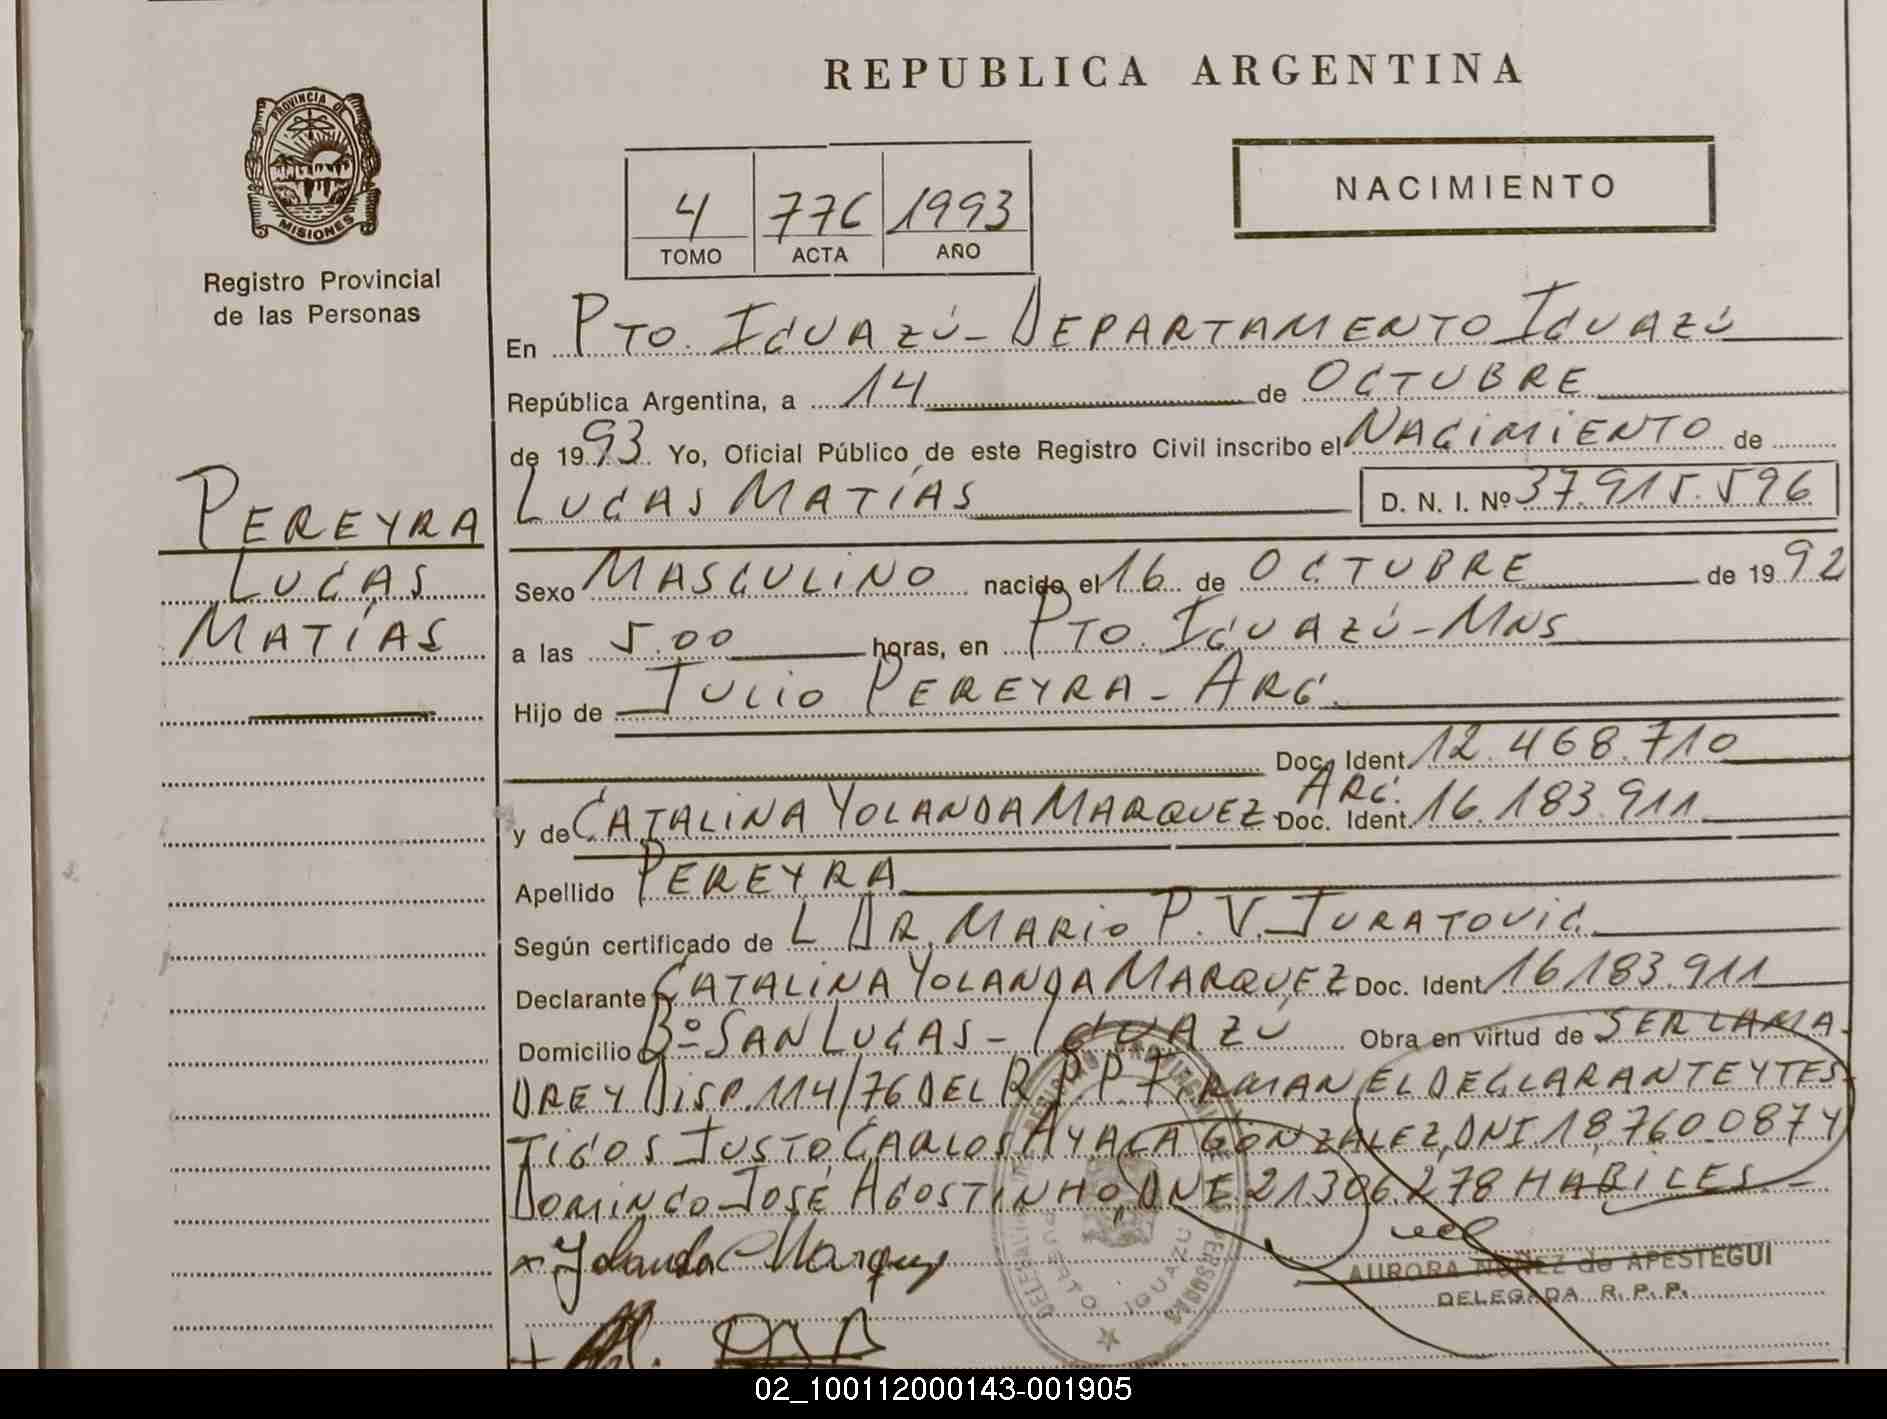 REPUBLICA ARGENTINA
PROVINCIA DE
MISIONES
Registro Provincial
de las Personas
4 776 1993
TOMO ACTA AÑO
NACIMIENTO
En PTO. IGUAZÚ - DEPARTAMENTO IGUAZÚ
República Argentina, a 14 de OCTUBRE
de 1993 Yo, Oficial Público de este Registro Civil inscribo el NACIMIENTO de
LUCAS MATÍAS D. N. I. Nº 37.915.596
PEREYRA
LUCAS
MATÍAS
Sexo MASCULINO nacido el 16 de OCTUBRE de 1992
a las 5.00 horas, en PTO. IGUAZÚ - MNS
Hijo de JULIO PEREYRA - ARG.
Doc. Ident. 12.468.710
ARG.
y de CATALINA YOLANDA MARQUEZ Doc. Ident. 16.183.911
Apellido PEREYRA
Según certificado de L DR. MARIO P. V. JURATOVIC.
Declarante CATALINA YOLANDA MARQUEZ Doc. Ident 16.183.911
Domicilio Bº SAN LUCAS - IGUAZÚ Obra en virtud de SER LA MA-
DRE Y DISP. 114/76 DEL R.P.P. FIRMAN EL DECLARANTE Y TES-
TIGOS JUSTO CARLOS AYALA GONZALEZ, DNI 18.760.087 Y
DOMINGO JOSÉ AGOSTINHO, DNI 21.306.278 HABILES -
Yolanda Marquez
PUERTO IGUAZU
AURORA NUÑEZ de APESTEGUI
DELEGADA R. P. P.
02_100112000143-001905